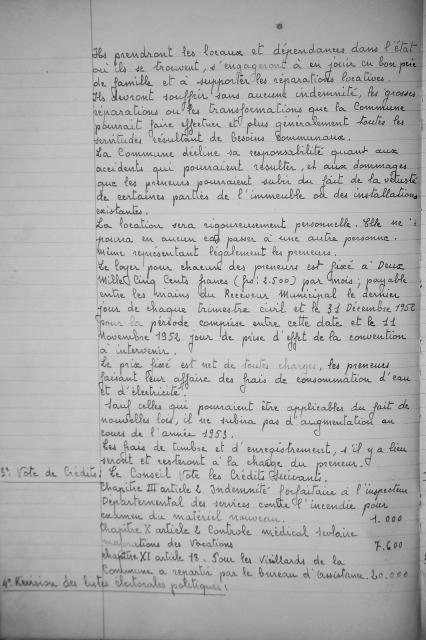 Ils prendront les locaux et dépendances dans l'état
où ils se trouvent, s'engageront à en jouir en bon père
de famille et à supporter les réparations locatives.
Ils devront souffrir sans aucune indemnité, les grosses
réparations ou les transformations que la Commune
pourrait faire effectuer et plus généralement toutes les
servitudes résultant de besoins Communaux.
La Commune décline sa responsabilité quant aux
accidents qui pourraient résulter, et aux dommages
que les preneurs pourraient subir du fait de la vétusté
de certaines parties de l'immeuble ou des installations
existantes.
La location sera rigoureusement personnelle. Elle ne
pourra en aucun cas passer à une autre personne.
même représentant légalement les preneurs.
Le loyer pour chacun des preneurs est fixé à Deux
Mille Cinq Cents francs (frs: 2.500) par mois; payable
entre les mains du Receveur Municipal le dernier
jour de chaque trimestre civil et le 31 Décembre 1952
pour la période comprise entre cette date et le 11
Novembre 1952 jour de prise d'effet de la convention
à intervenir.
Le prix fixé est net de toutes charges, les preneurs
faisant leur affaire des frais de consommation d'eau
et d'électricité.
Sauf celles qui pourraient être applicables du fait de
nouvelles lois, il ne subira pas d'augmentation au
cours de l'année 1953.
Les frais de timbre et d'enregistrement, s'il y a lieu
seront et resteront à la charge du preneur.
3° Vote de Crédits: Le Conseil Vote les Crédits Suivants.
Chapitre III article 2 Indemnité forfaitaire à l'inspecteur
Départemental des services contre l'incendie pour
examen du matériel nouveau. 1.000
Chapitre X article 2 Controle médical scolaire
majorations des Vacations 7.600
chapitre XI article 13. Pour les Vieillards de la
Commune a repartir par le bureau d'assistance. 20.000
4° Revision des listes électorales politiques: